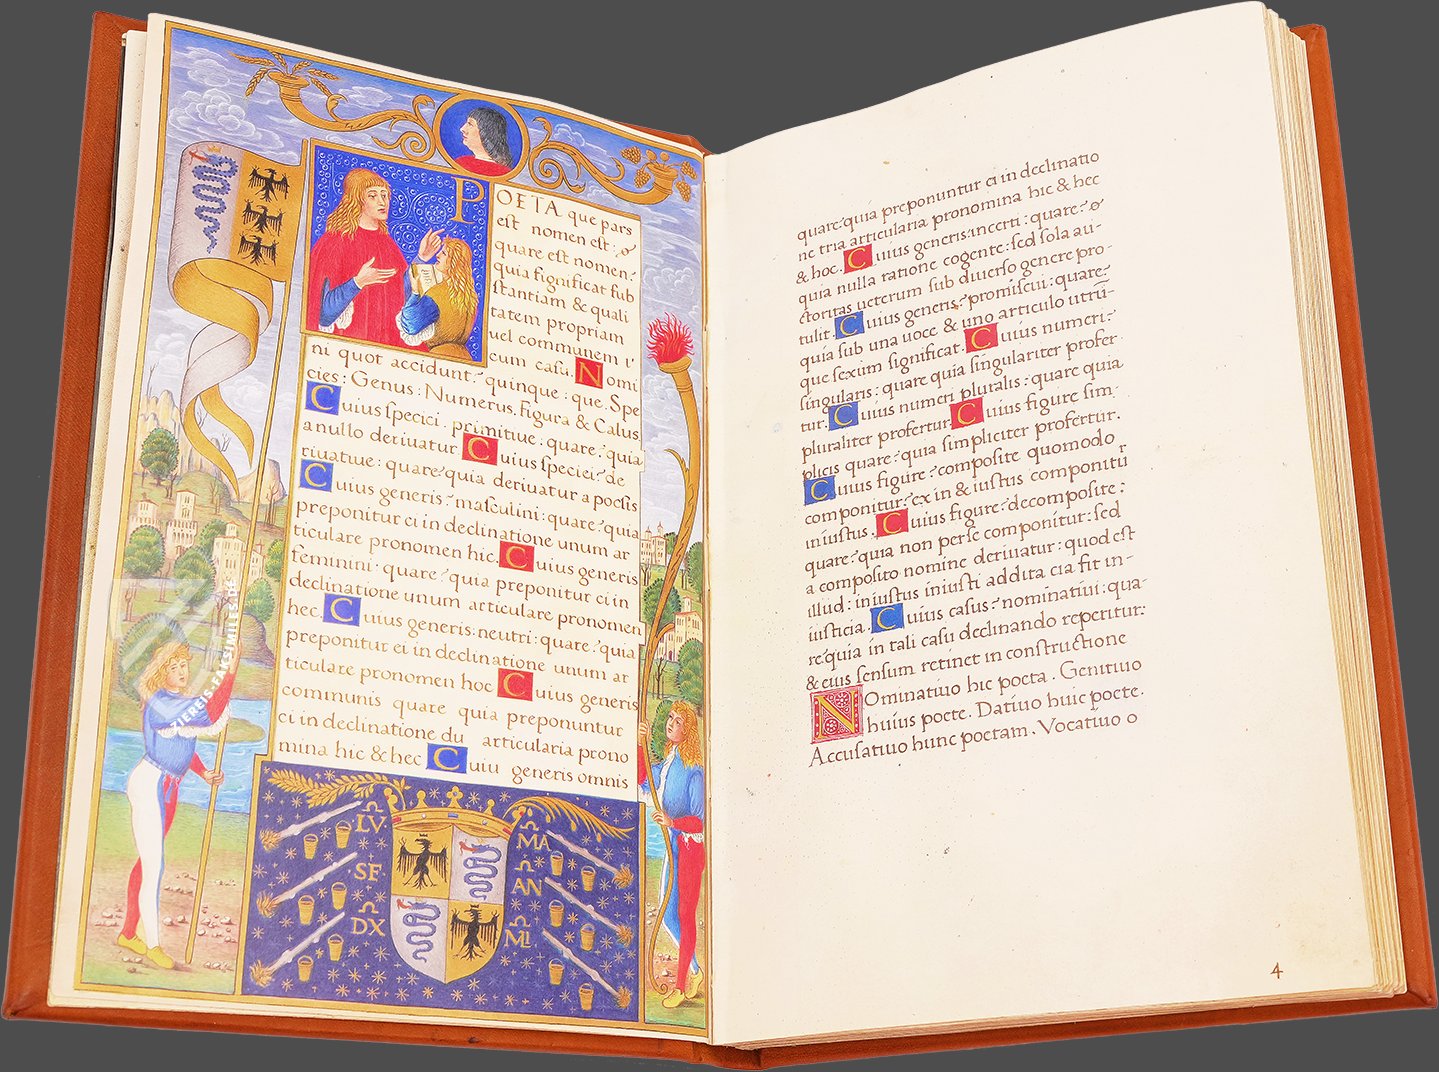 POETA que pars
est nomen est: &
quare est nomen?
quia significat sub
stantiam & quali
tatem propriam
uel communem
cum casu. Nomi
ni quot accidunt? quinque: que. Spe
cies: Genus: Numerus. Figura & Casus.
Cuius speciei. primitiue: quare? quia
a nullo deriuatur Cuius speciei? de
riuatiue: quare? quia deriuatur a poesis
Cuius generis? masculini: quare? quia
preponitur ei in declinatione unum ar
ticulare pronomen hic. Cuius generis
feminini: quare? quia preponitur ei in
declinatione unum articulare pronomen
hec. Cuius generis: neutri: quare? quia
preponitur ei in declinatione unum ar
ticulare pronomen hoc Cuius generis
communis quare quia preponuntur
ei in declinatione du articularia prono
mina hic & hec Cuiu generis omnis
LV
SF
DX
MA
AN
MI
ZIEREIS FAKSIMILES.DE
quare? quia preponuntur ei in declinatio
ne tria articularia pronomina hic & hec
& hoc. Cuius generis: incerti: quare?
quia nulla ratione cogente: sed sola au-
ctoritas ueterum sub diuerso genere pro-
tulit. Cuius generis? promiscui: quare?
quia sub una uoce & uno articulo utrũ-
que sexum significat. Cuius numeri?
singularis: quare quia singulariter profer
tur. Cuius numeri pluralis: quare quia
pluraliter profertur. Cuius figure sim-
plicis quare? quia simpliciter profertur.
Cuius figure? composite quomodo
componitur? ex in & iustus componitur
iniustus. Cuius figure? decomposite:
quare? quia non per se componitur: sed
a composito nomine deriuatur: quod est
illud: iniustus iniusti addita cia fit in-
iusticia. Cuius casus? nominatiui: qua
re? quia in tali casu declinando reperitur:
& eius sensum retinet in constructione
NOminatiuo hic poeta. Genitiuo
huius poete. Datiuo huic poete.
Accusatiuo hunc poetam. Vocatiuo o
4